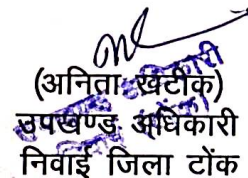 (अनिता खटीक)
उपखण्ड अधिकारी
निवाई जिला टोंक